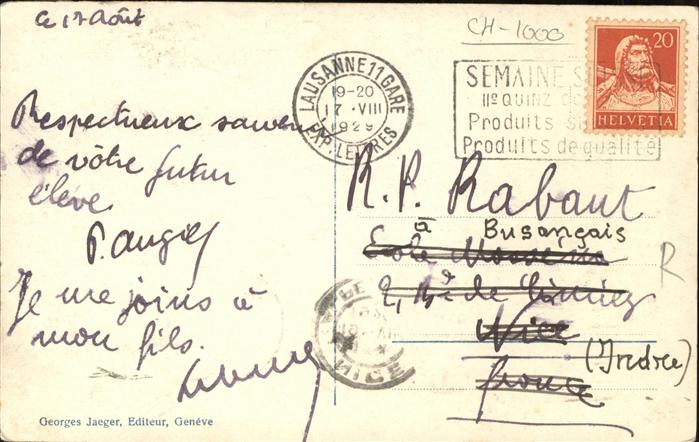 ce 17 Août
CH-1000
20
HELVETIA
LAUSANNE 11 GARE
19-20
17 VIII
1929
EXP. LETTRES
SEMAINE S
IIº QUINZ
Produits
Produits de qualité
Respectueux souvenir
de vôtre futur
élève
Je me joins à
mon fils.
R. P. Rabaut
à Busançais
Ecole
2, Bd de Cimiez
Nice
(Indre)
france
R
NICE
Georges Jaeger, Editeur, Genéve